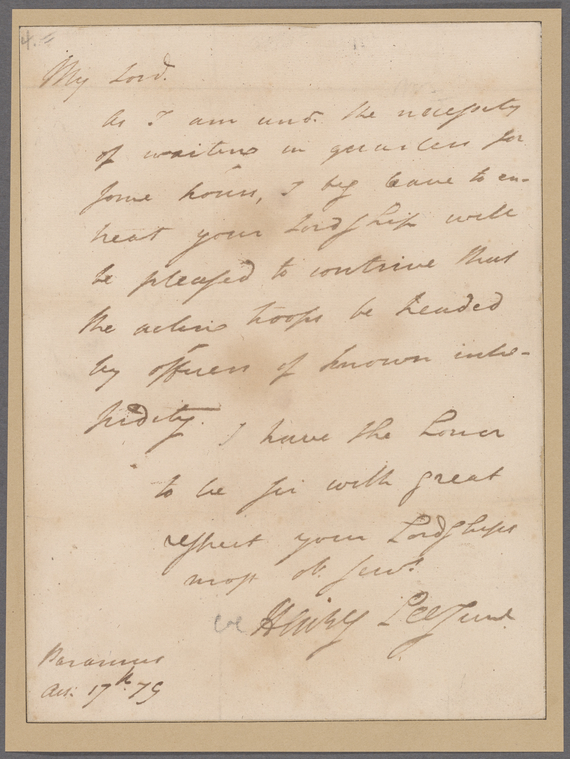 4.
My Lord.
As I am undr. the necessity
of waiting in quarters for
some hours, I beg leave to en-
treat your Lordship will
be pleased to contrive that
the active troops be headed
by officers of known intre-
pidity. I have the honor
to be sir with great
respect your Lordships
most ob. servt.
Henry Lee Junr.
Paramus
Au: 17th 79